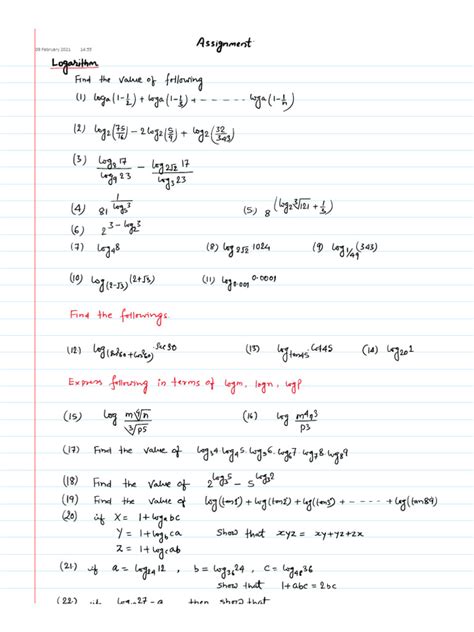 08 February 2021 14:55
Assignment
Logarithm
Find the value of following
(1) loga(1-1/2) + loga(1-1/3) + ------ loga(1-1/n)
(2) log2(75/16) - 2log2(5/9) + log2(32/243)
(3) log3 17 / log9 23 - log2√2 17 / log3 23
(4) 81^(1/log5 3) (5) 8^(log2 ∛121 + 1/3)
(6) 2^(3-log2 3)
(7) log4 8 (8) log2√2 1024 (9) log1/49 (343)
(10) log(2-√3) (2+√3) (11) log0.001 0.0001
Find the followings.
(12) log(sin²60+cos²60) sec30 (13) logtan45 cot45 (14) log20 1
Express following in terms of logm, logn, logp
(15) log m∜n / ∛p5 (16) log m4n3 / p3
(17) Find the value of log34.log45.log56.log67 log78.log89
(18) Find the value of 2^(log35) - 5^(log32)
(19) Find the value of log(tan1) + log(tan2) + log(tan3) + ---- + log(tan89)
(20) if X = 1+logabc
Y = 1+logbca Show that xyz = xy+yz+zx
Z = 1+logcab
(21) if a = log2412, b = log3624, c = log4836
Show that 1+abc = 2bc
(22) if 27=a then show that